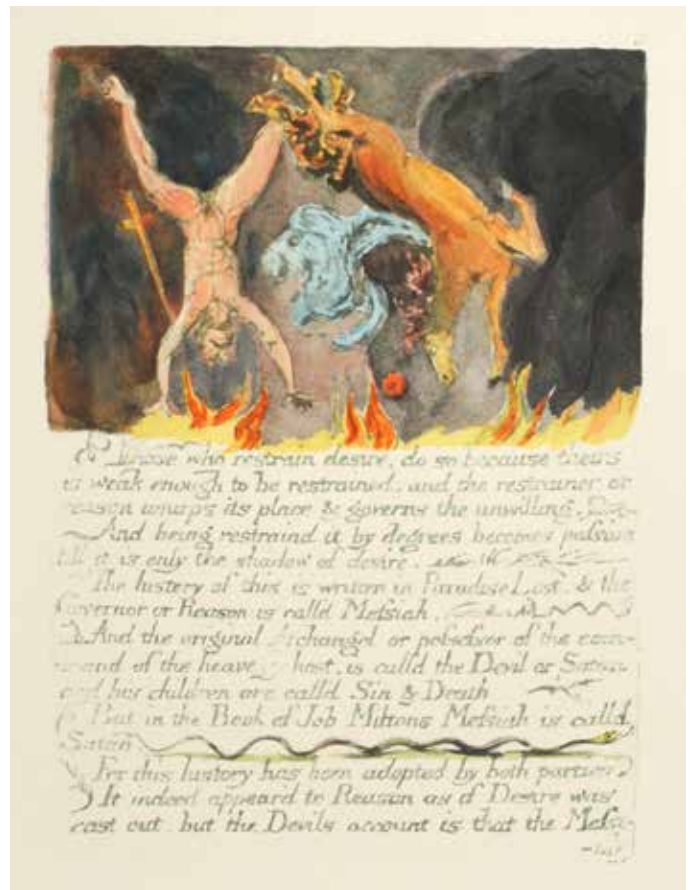 Those who restrain desire, do so because theirs
is weak enough to be restrained; and the restrainer or
reason usurps its place & governs the unwilling.
And being restraind it by degrees becomes passive
till it is only the shadow of desire.
The history of this is written in Paradise Lost, & the
Governor or Reason is call'd Messiah.
And the original Archangel or possessor of the com-
-mand of the heavenly host, is calld the Devil or Satan
and his children are call'd Sin & Death
But in the Book of Job Miltons Messiah is call'd
Satan
For this history has been adopted by both parties
It indeed appear'd to Reason as if Desire was
cast out, but the Devils account is, that the Messi-